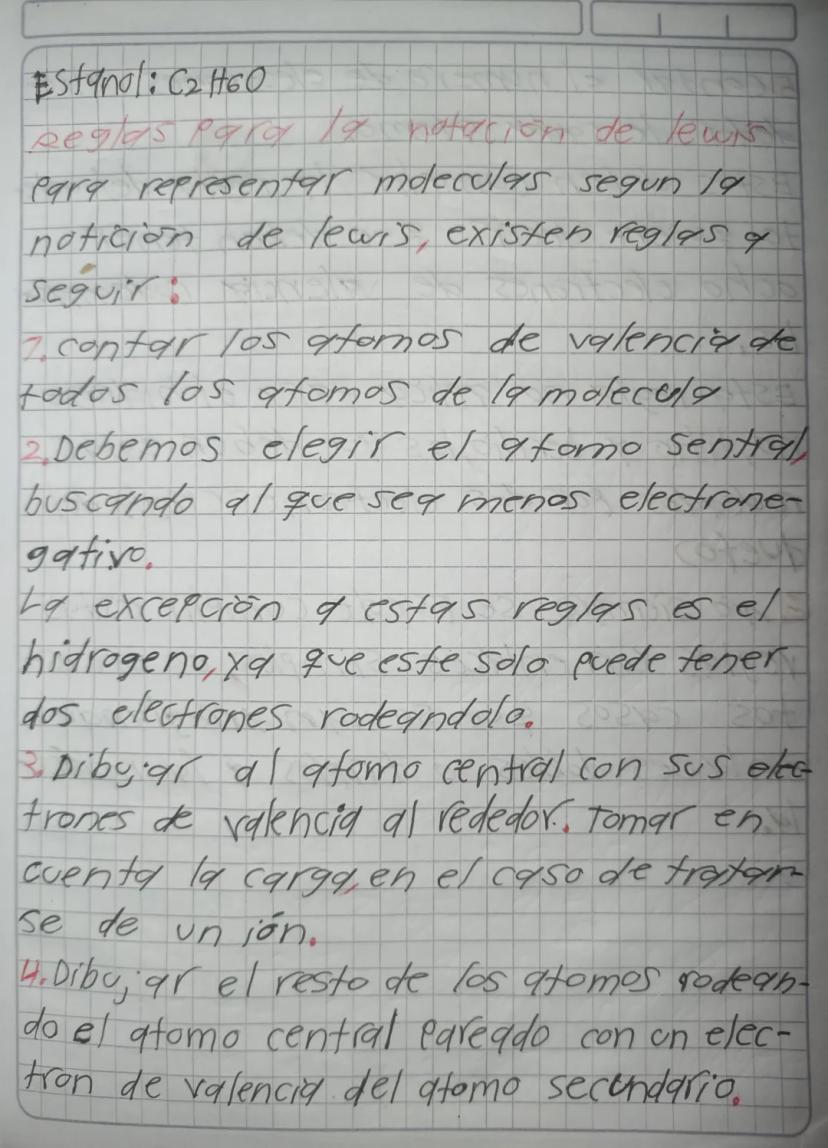 Estanol: C2H6O
Reglas para la notación de lewis
para representar moleculas segun la
notición de lewis, existen reglas a
seguir:
1. contar los atomos de valencia de
todos los atomos de la molecula
2. Debemos elegir el atomo sentral,
buscando al que sea menos electrone-
gativo.
La excepción a estas reglas es el
hidrogeno, ya que este solo puede tener
dos electrones rodeandolo.
3. Dibujar al atomo central con sus elec-
trones de valencia al rededor. Tomar en
cuenta la carga, en el caso de tratar-
se de un ión.
4. Dibujar el resto de los atomos rodean-
do el atomo central pareado con un elec-
tron de valencia del atomo secundario.